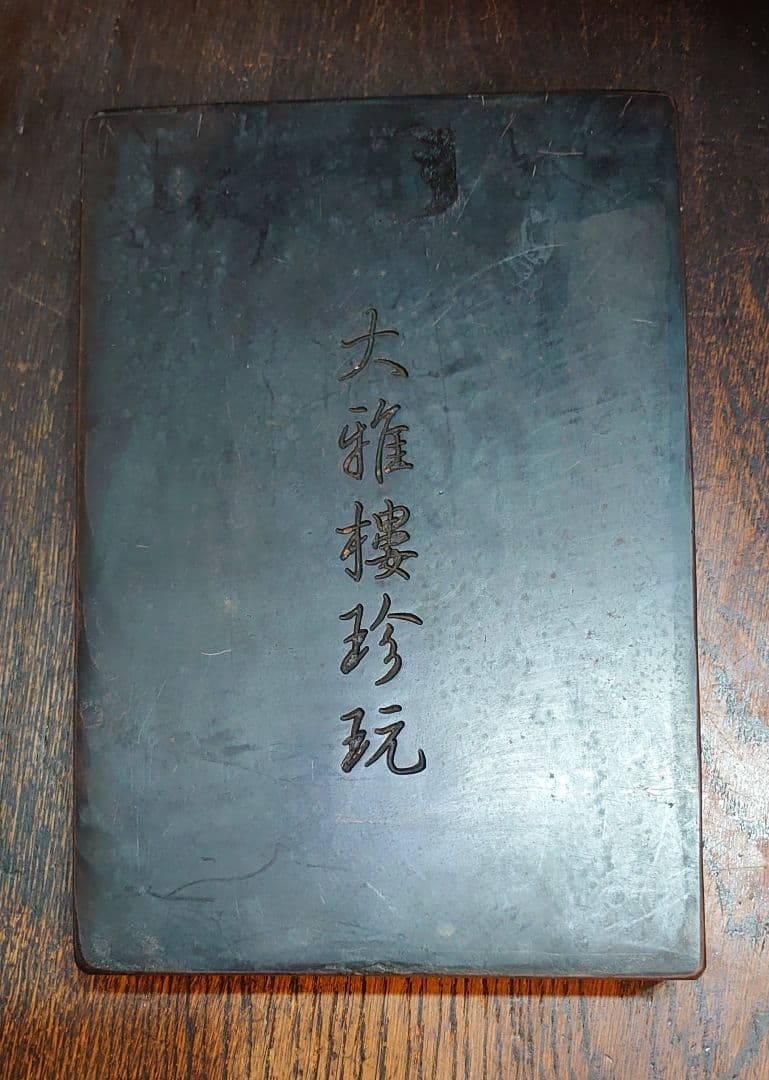 大雅樓珍玩